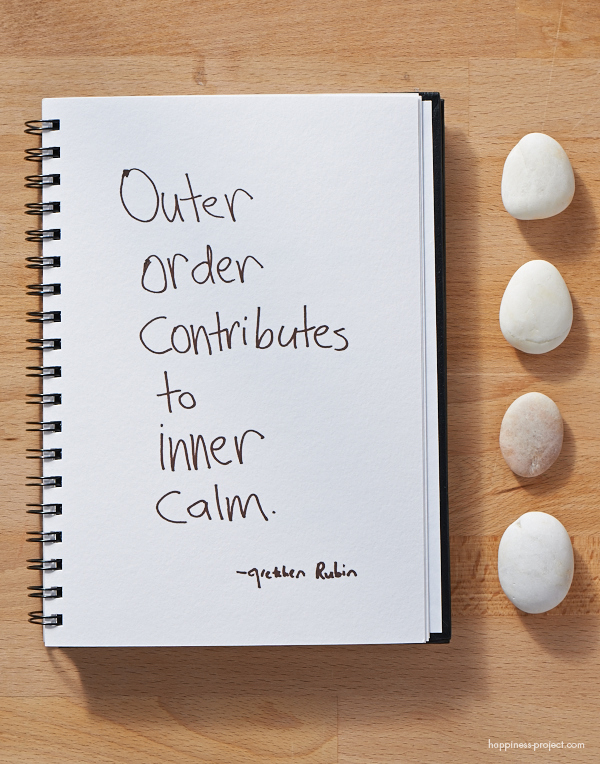 Outer
order
Contributes
to
inner
calm.
-gretchen Rubin
happiness-project.com